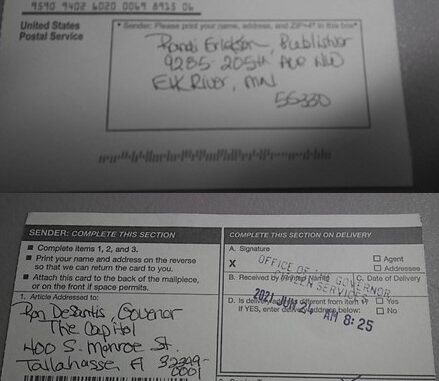 9590 9402 6020 0069 8915 06
United States
Postal Service
• Sender: Please print your name, address, and ZIP+4® in this box•
Randi Erickson, Publisher
9285-205th Ave NW
Elk River, MN
55330
SENDER: COMPLETE THIS SECTION
■ Complete items 1, 2, and 3.
■ Print your name and address on the reverse
so that we can return the card to you.
■ Attach this card to the back of the mailpiece,
or on the front if space permits.
1. Article Addressed to:
Ron DeSantis, Governor
The Capitol
400 S. Monroe St.
Tallahassee, Fl 32399-
0001
COMPLETE THIS SECTION ON DELIVERY
A. Signature
X
☐ Agent
☐ Addressee
B. Received by (Printed Name)
C. Date of Delivery
OFFICE OF THE GOVERNOR
CITIZEN SERVICES
2021 JUN 24 AM 8:25
D. Is delivery address different from item 1? ☐ Yes
If YES, enter delivery address below: ☐ No